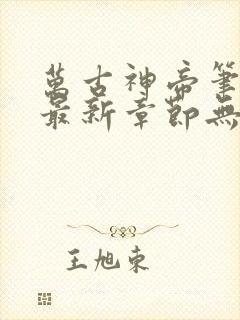 萬古神帝筆
最新章節無
王旭東